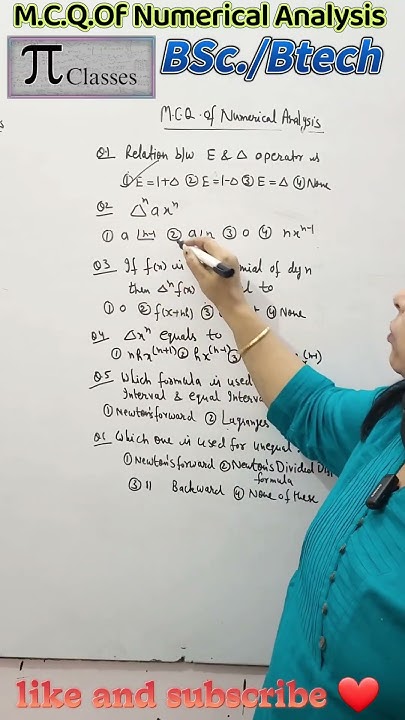 M.C.Q.Of Numerical Analysis
π Classes
BSc./Btech
M.C.Q. of Numerical Analysis
Q1 Relation b/w E & Δ operator is
① E=1+Δ ② E=1-Δ ③ E=Δ ④ None
Q2 Δⁿ axⁿ
① a ⌊n-1 ② a⌊n ③ 0 ④ nxⁿ⁻¹
Q3 If f(x) is of deg n
then Δⁿ f(x) to
① 0 ② f(x+nh) ③ ④ None
Q4 Δxⁿ equals to
① nhx⁽ⁿ⁺¹⁾ ② hx⁽ⁿ⁻¹⁾ ③
Q5 Which formula is used
Interval & equal Interval
① Newton's forward ② Lagranges
Q1 Which one is used for unequal
① Newton's forward ② Newton's Divided
formula
③ 11 Backward ④ None of these
like and subscribe ❤